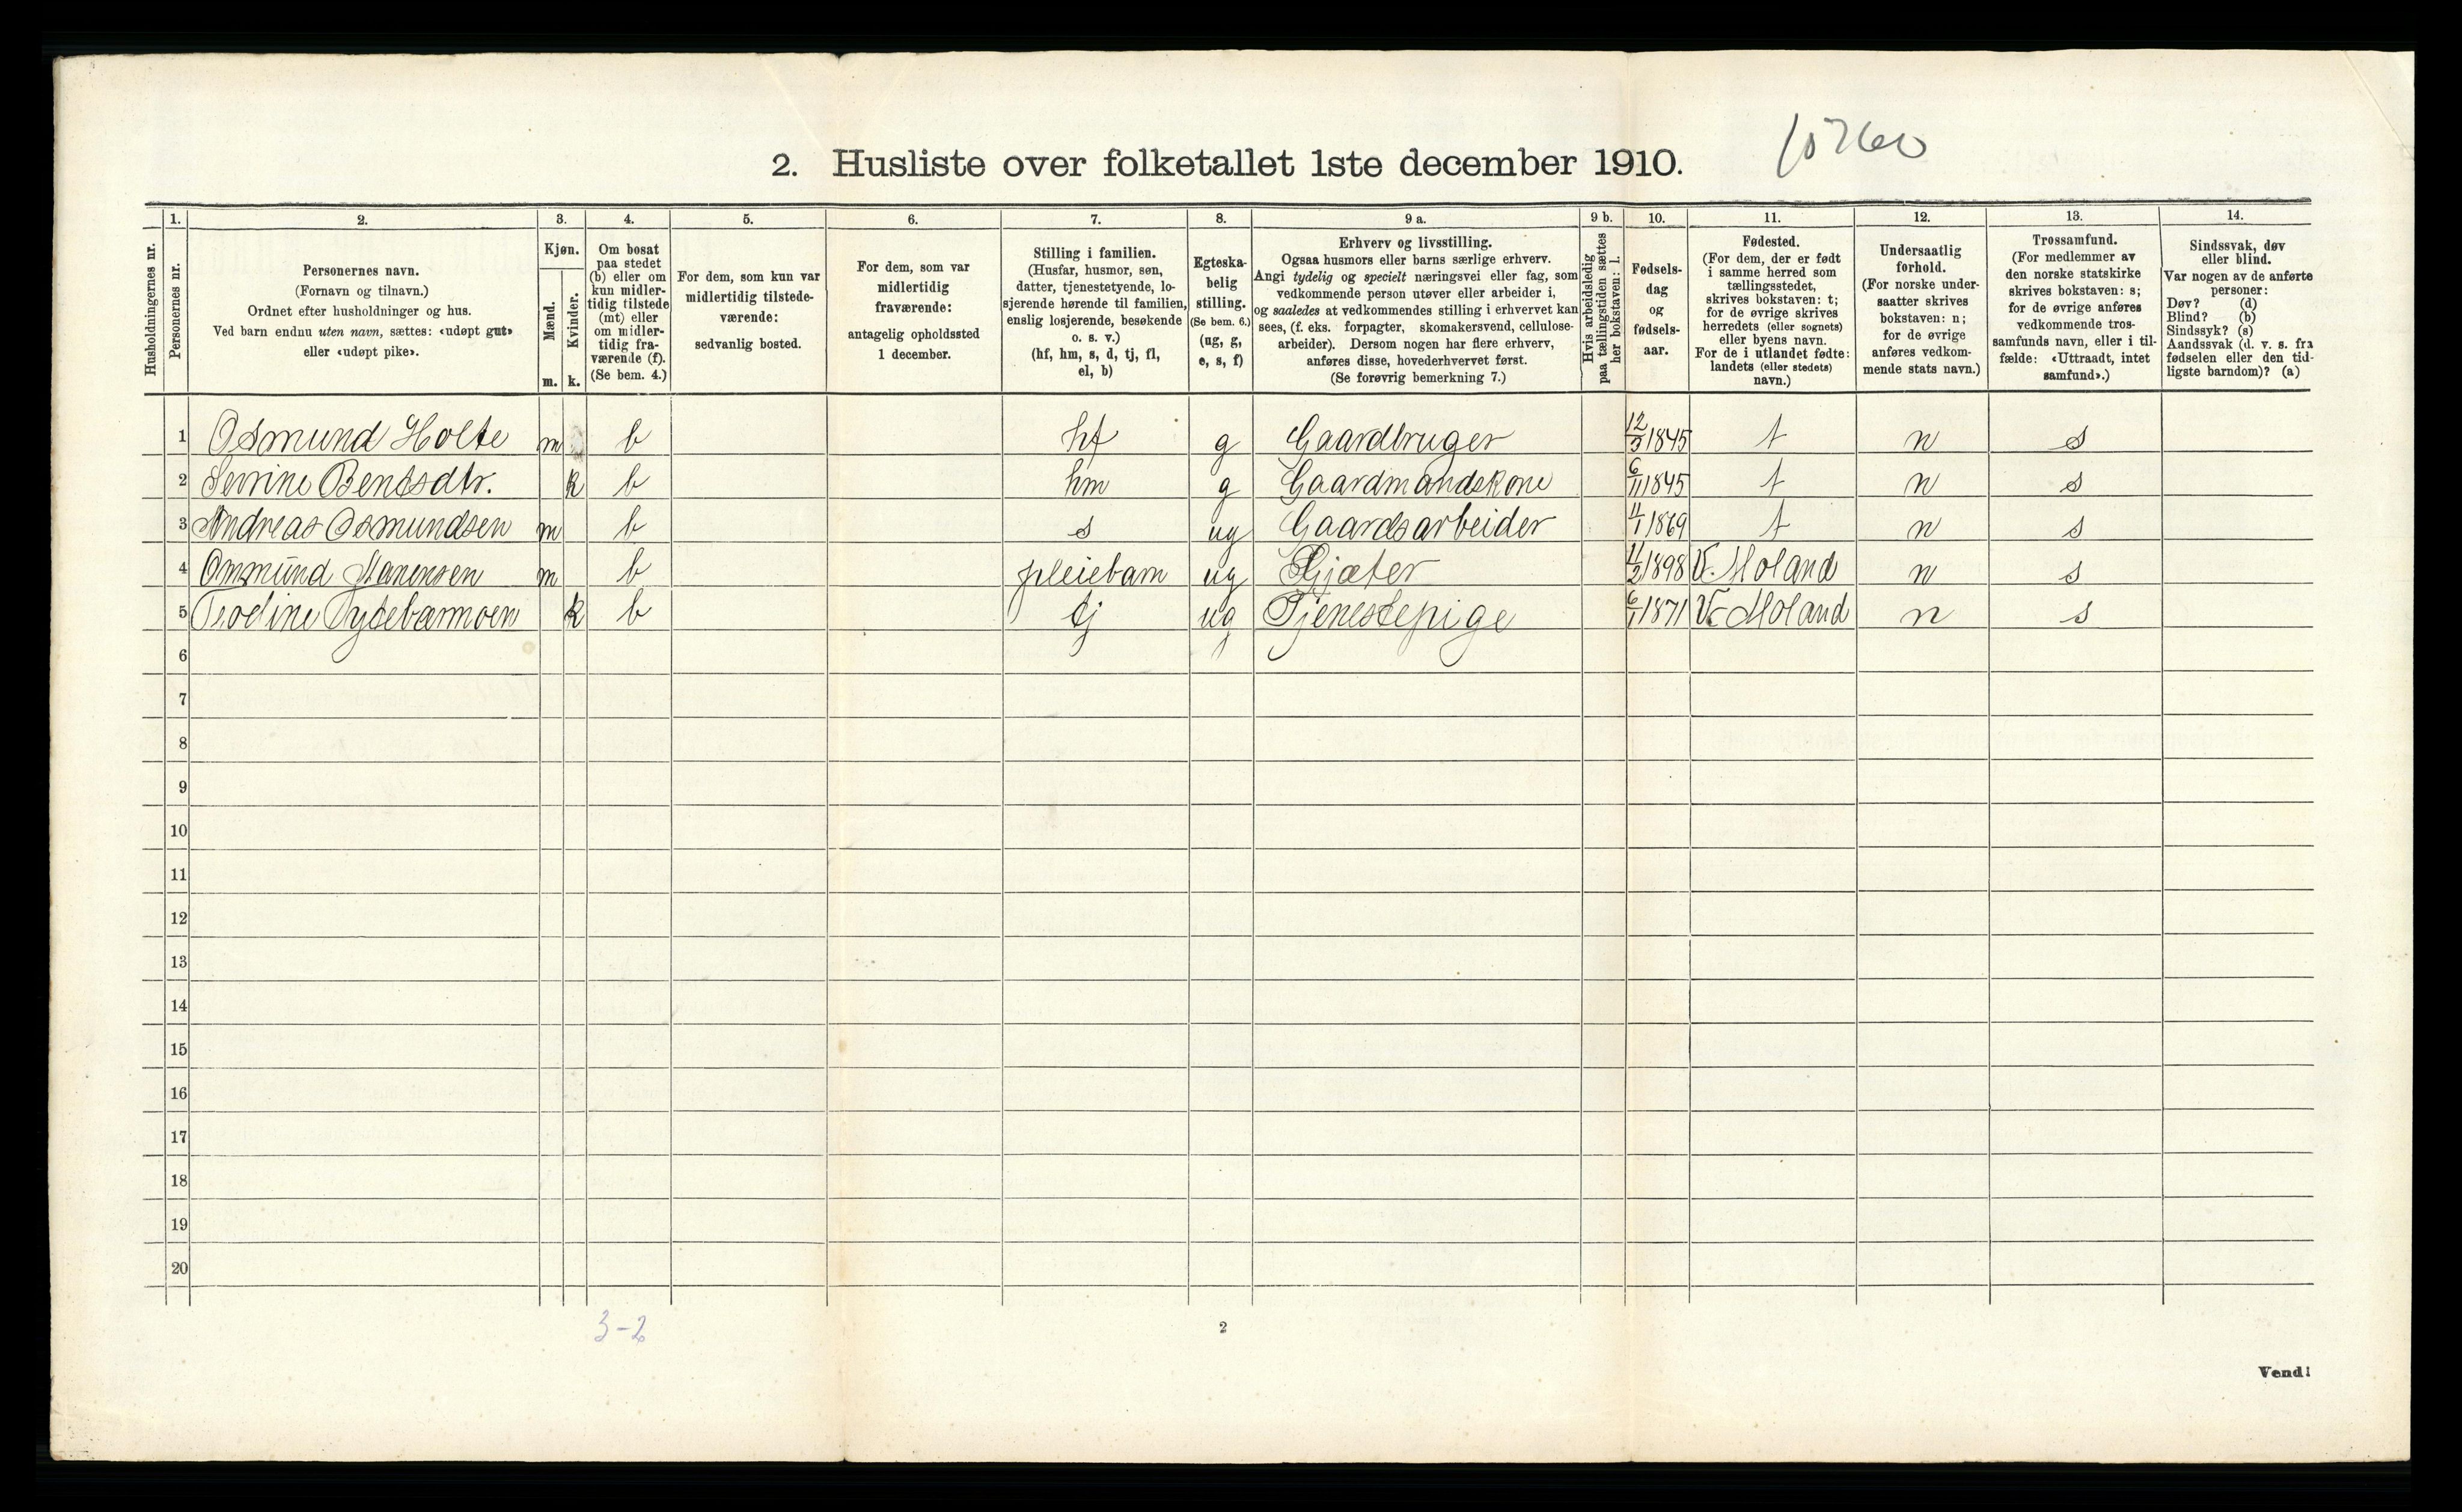 2. Husliste over folketallet 1ste december 1910.
Husholdningernes nr.
1. Personernes nr.
2. Personernes navn.
(Fornavn og tilnavn.)
Ordnet efter husholdninger og hus.
Ved barn endnu uten navn, sættes: «udøpt gut»
eller «udøpt pike».
3. Kjøn.
Mænd. m.
Kvinder. k.
4. Om bosat
paa stedet
(b) eller om
kun midler-
tidig tilstede
(mt) eller
om midler-
tidig fra-
værende (f).
(Se bem. 4.)
5. For dem, som kun var
midlertidig tilstede-
værende:
sedvanlig bosted.
6. For dem, som var
midlertidig
fraværende:
antagelig opholdssted
1 december.
7. Stilling i familien.
(Husfar, husmor, søn,
datter, tjenestetyende, lo-
sjerende hørende til familien,
enslig losjerende, besøkende
o. s. v.)
(hf, hm, s, d, tj, fl,
el, b)
8. Egteska-
belig
stilling.
(Se bem. 6.)
(ug, g,
e, s, f)
9 a. Erhverv og livsstilling.
Ogsaa husmors eller barns særlige erhverv.
Angi tydelig og specielt næringsvei eller fag, som
vedkommende person utøver eller arbeider i,
og saaledes at vedkommendes stilling i erhvervet kan
sees, (f. eks. forpagter, skomakersvend, cellulose-
arbeider). Dersom nogen har flere erhverv,
anføres disse, hovederhvervet først.
(Se forøvrig bemerkning 7.)
9 b. Hvis arbeidsledig
paa tællingstiden sættes
her bokstaven: l.
10. Fødsels-
dag
og
fødsels-
aar.
11. Fødested.
(For dem, der er født
i samme herred som
tællingsstedet,
skrives bokstaven: t;
for de øvrige skrives
herredets (eller sognets)
eller byens navn.
For de i utlandet fødte:
landets (eller stedets)
navn.)
12. Undersaatlig
forhold.
(For norske under-
saatter skrives
bokstaven: n;
for de øvrige
anføres vedkom-
mende stats navn.)
13. Trossamfund.
(For medlemmer av
den norske statskirke
skrives bokstaven: s;
for de øvrige anføres
vedkommende tros-
samfunds navn, eller i til-
fælde: «Uttraadt, intet
samfund».)
14. Sindssvak, døv
eller blind.
Var nogen av de anførte
personer:
Døv? (d)
Blind? (b)
Sindssyk? (s)
Aandssvak (d. v. s. fra
fødselen eller den tid-
ligste barndom)? (a)
1 Osmund Holte m b hf g Gaardbruger 12/3 1845 t n s
2 Serine Bentsdtr. k b hm g Gaardmandskone 6/11 1845 t n s
3 Andreas Osmundsen m b s ug Gaardsarbeider 4/1 1869 t n s
4 Ommund m b pleiebarn ug Gjæter 11/2 1898 V. Moland n s
5 k b tj ug Tjenestepige 6/1 1871 V. Moland n s
6
7
8
9
10
11
12
13
14
15
16
17
18
19
20
3-2
2
Vend!